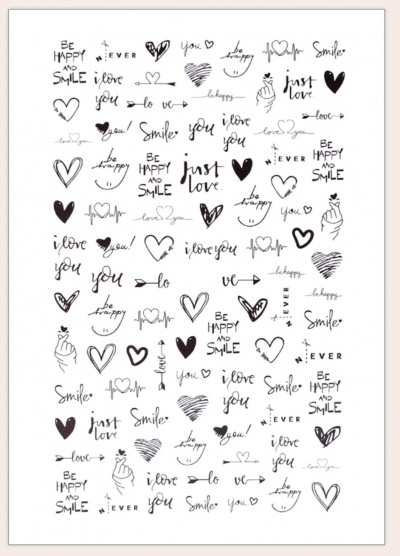 BE
HAPPY
AND
SMILE
N EVER
You
be happy
Smile
i love
you
just
love
lo ve
be happy
you!
Smile
you
i love
you
love you
love
love you
be happy
BE
HAPPY
AND
SMILE
just
love
N EVER
BE
HAPPY
AND
SMILE
love you
be happy
you
i love
you
you!
i love you
be happy
you
lo
ve
be happy
be happy
BE
HAPPY
AND
SMILE
N EVER
Smile
love
you
i love
you
N EVER
Smile
Smile
BE
HAPPY
AND
SMILE
just
love
Smile
be happy
you!
N EVER
i love
you
love
love you
BE
HAPPY
AND
SMILE
N EVER
i love
you
Smile
you
be happy